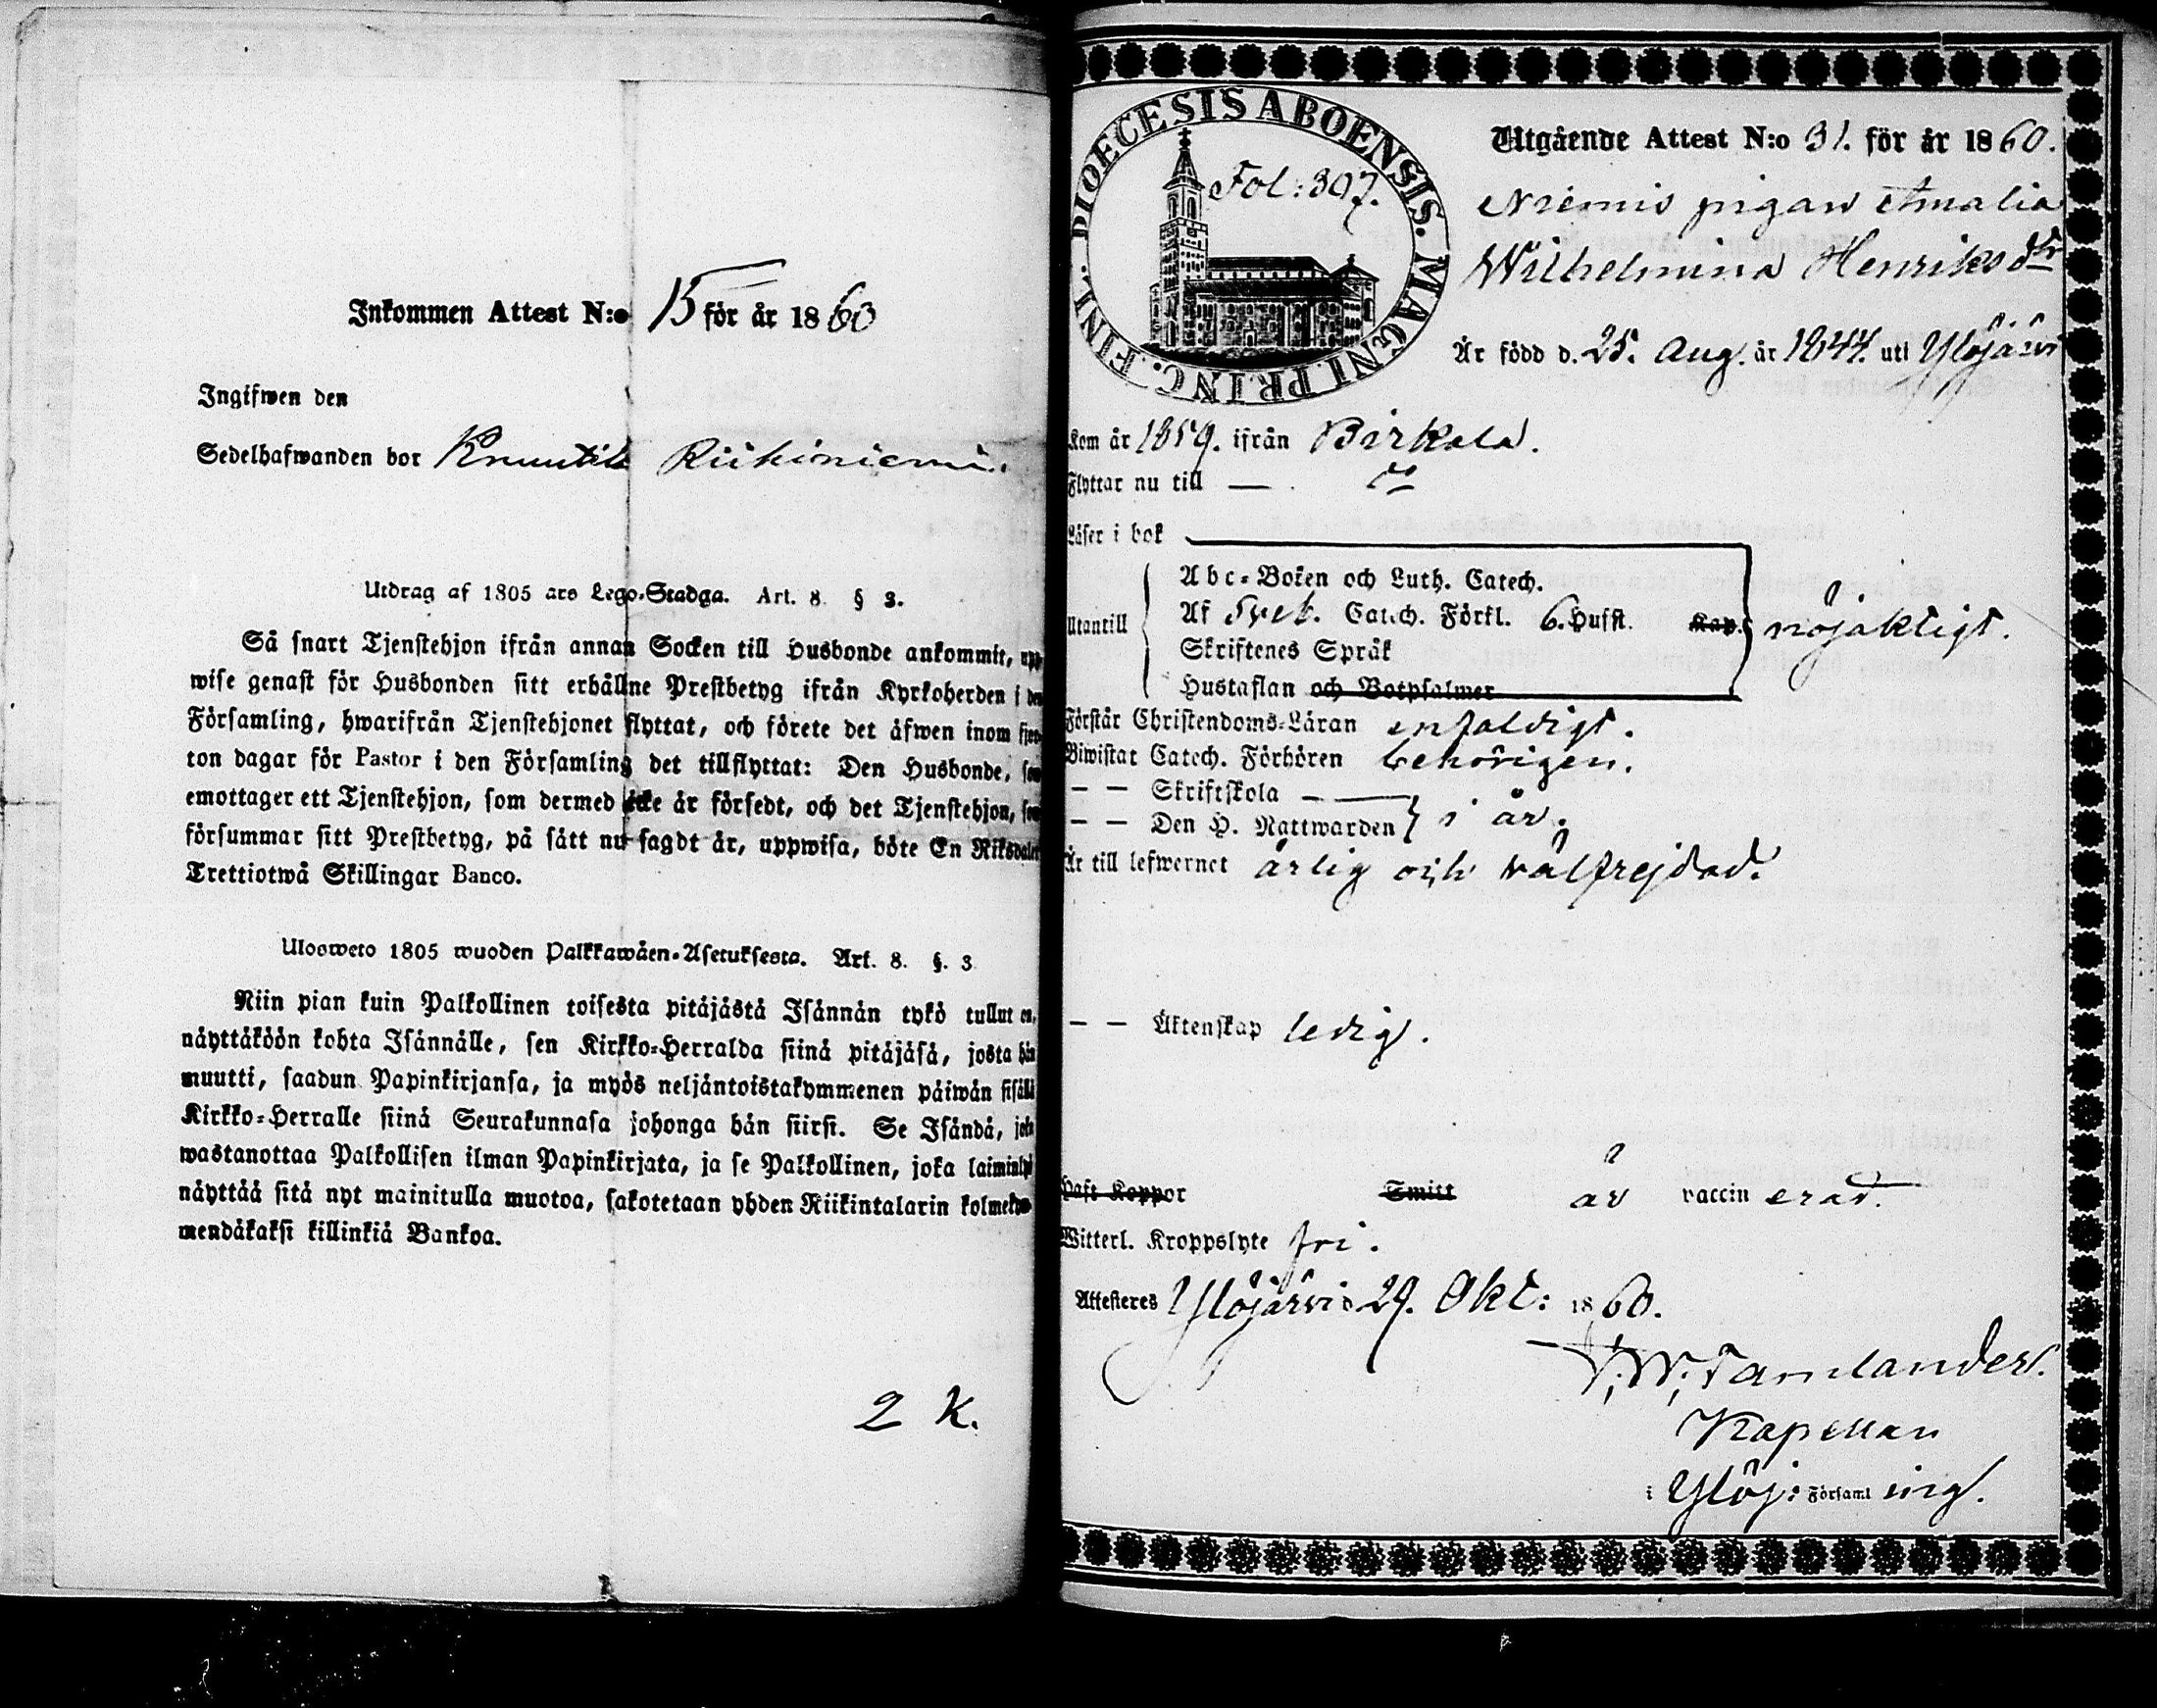 Inkommen Attest N:o 15 för år 1860
Ingifwen den
Sedelhafwanden bor Knuutila Riihiniemi.
Utdrag af 1805 ars Lego-Stadga. Art. 8 § 3.
Så snart Tjenstehjon ifrån annan Socken till Husbonde ankommit, upp-
wise genast för Husbonden sitt erhållne Prestbetyg ifrån Kyrkoherden i den
Församling, hwarifrån Tjenstehjonet flyttat, och förete det äfwen inom fjor-
ton dagar för Pastor i den Församling det tillflyttat: Den Husbonde, som
emottager ett Tjenstehjon, som dermed icke är försedt, och det Tjenstehjon, som
försummar sitt Prestbetyg, på sätt nu sagdt är, uppwisa, böte En Riksdaler
Trettiotwå Skillingar Banco.
Ulosweto 1805 wuoden Palkkawäen-Asetuksesta. Art. 8. §. 3
Niin pian kuin Palkollinen toisesta pitäjästä Isännän tykö tullut on,
näyttäköön kohta Isännälle, sen Kirkko-Herralda siinä pitäjäsä, josta hän
muutti, saadun Papinkirjansa, ja myös neljäntoistakymmenen päiwän sisällä
Kirkko-Herralle siinä Seurakunnasa johonga hän siirsi. Se Isändä, joka
wastanottaa Palkollisen ilman Papinkirjata, ja se Palkollinen, joka laiminlyö
näyttää sitä nyt mainitulla muotoa, sakotetaan yhden Riikintalarin kolmeky-
mendäkaksi killinkiä Bankoa.
2 K.
DIOECESIS ABOENSIS. MAGNI PRINC. FINL.
Fol: 307.
Utgående Attest N:o 31. för år 1860.
Niemis pigan Amalia
Wilhelmina Henriksdtr
Är född d. 25. Aug. år 1844. uti Ylöjärvi
Kom år 1859. ifrån Birkala.
Flyttar nu till — . do
Läser i bok
Utantill
Abc-Boken och Luth. Catech.
Af Sveb. Catech. Förkl. 6. Hufst. Kap.
Skriftenes Språk
Hustaflan och Botpsalmer
nöjaktigt.
Förstår Christendoms-Läran enfaldigt.
Biwistat Catech. Förhören behörigen.
— — Skriftskola —
— — Den H. Nattwarden i år.
Är till lefwernet ärlig och välfrejdad.
— — Äktenskap ledig.
Haft Koppor Smitt är vaccin erad.
Witterl. Kroppslyte fri.
Attesteres Ylöjärvi d 29. Okt: 1860.
Tamlander.
Kapellan
i Ylöj: Församl ing.